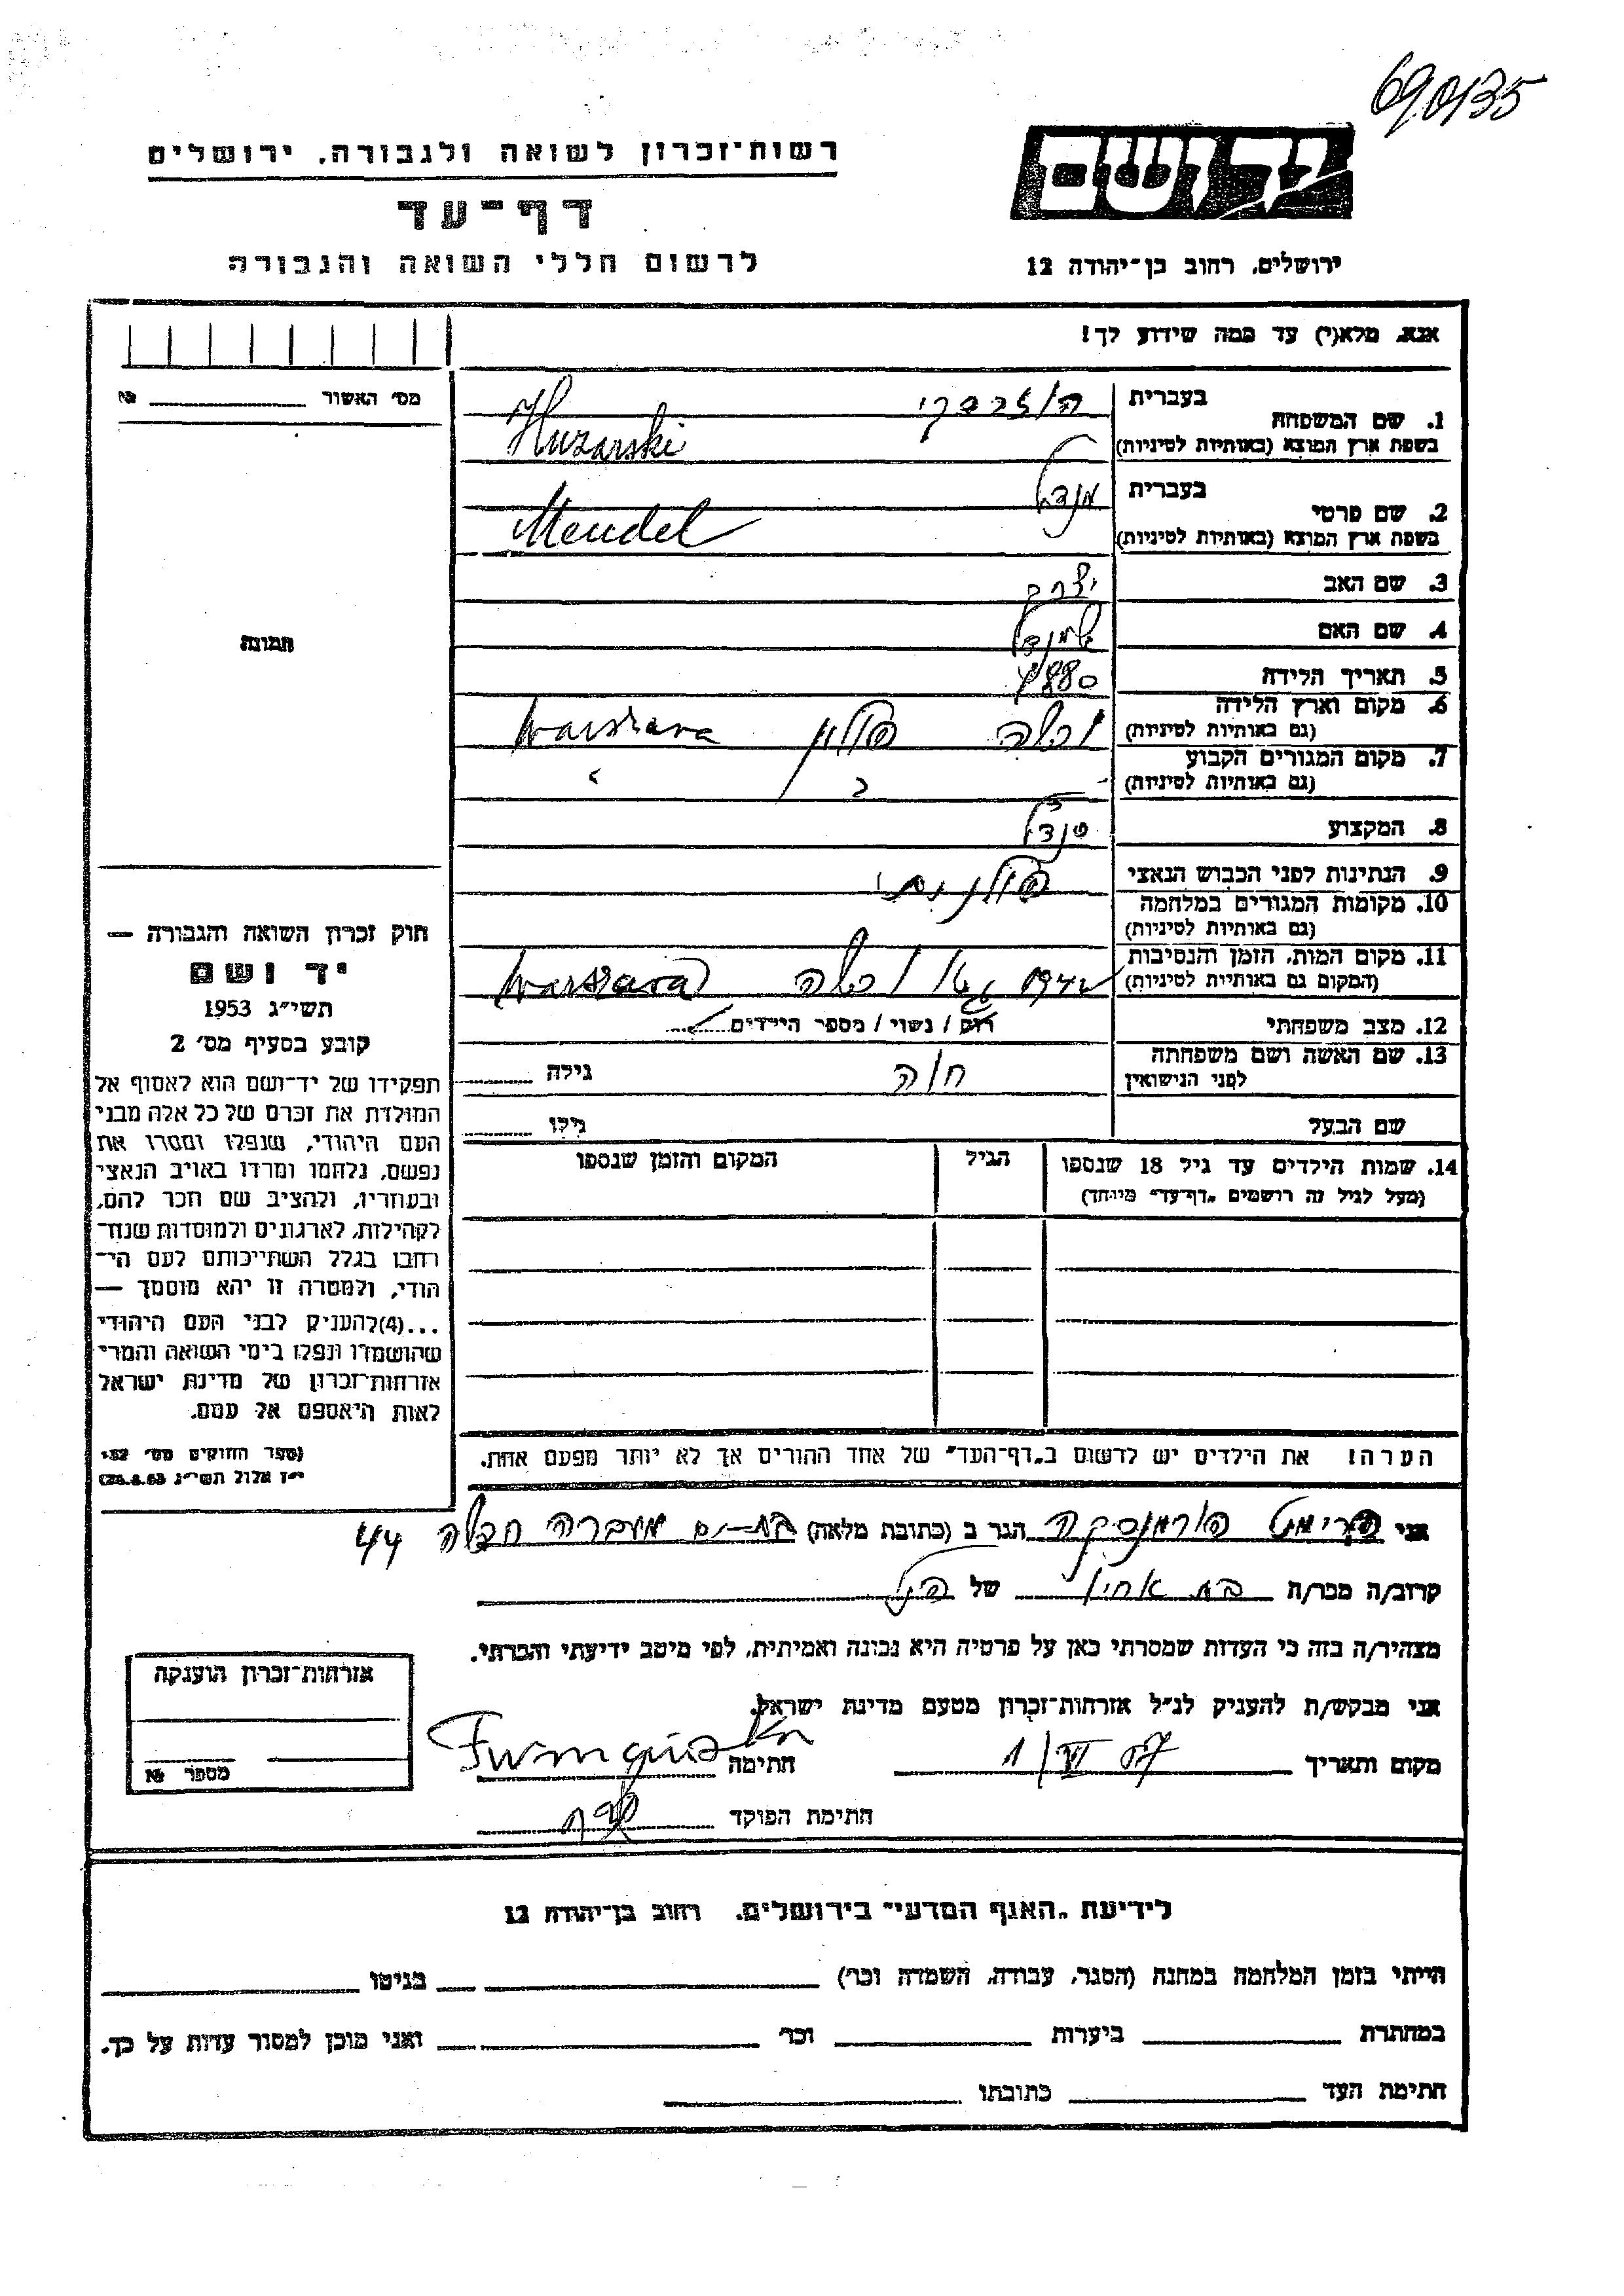 690135
רשות־זכרון לשואה ולגבורה, ירושלים
דף־עד
לרשום חללי השואה והגבורה
יד ושם
ירושלים, רחוב בן־יהודה 12
אנא, מלא(י) עד כמה שידוע לך!
מס׳ האשור № 
1. שם המשפחה בעברית הוזרסקי
בשפת ארץ המוצא (באותיות לטיניות) Huzarski
2. שם פרטי בעברית מנדל
בשפת ארץ המוצא (באותיות לטיניות) Mendel
3. שם האב
4. שם האם
5. תאריך הלידה 1880
6. מקום וארץ הלידה
(גם באותיות לטיניות) ורשה פולין Warszawa
7. מקום המגורים הקבוע
(גם באותיות לטיניות) "
8. המקצוע
9. הנתינות לפני הכבוש הנאצי פולנית
10. מקומות המגורים במלחמה
(גם באותיות לטיניות)
11. מקום המות, הזמן והנסיבות
(המקום גם באותיות לטיניות) גטו ורשה Warszawa
12. מצב משפחתי רוק / נשוי / מספר הילדים
13. שם האשה ושם משפחתה
לפני הנישואין חוה גילה
שם הבעל גילו
14. שמות הילדים עד גיל 18 שנספו הגיל המקום והזמן שנספו
(מעל לגיל זה רושמים „דף־עד״ מיוחד)
הערה! את הילדים יש לרשום ב„דף־העד״ של אחד ההורים אך לא יותר מפעם אחת.
תמונה
חוק זכרון השואה והגבורה —
יד ושם
תשי״ג 1953
קובע בסעיף מס׳ 2
תפקידו של יד־ושם הוא לאסוף אל
המולדת את זכרם של כל אלה מבני
העם היהודי, שנפלו ומסרו את
נפשם, נלחמו ומרדו באויב הנאצי
ובעוזריו, ולהציב שם וזכר להם,
לקהילות, לארגונים ולמוסדות שנח־
רבו בגלל השתייכותם לעם הי־
הודי, ולמטרה זו יהא מוסמך —
...(4) להעניק לבני העם היהודי
שהושמדו ונפלו בימי השואה והמרי
אזרחות־זכרון של מדינת ישראל
לאות היאספם אל עמם.
(ספר החוקים מס׳ 132
י״ז אלול תשי״ג 28.8.53)
אני פורמנסקה הגר ב (כתובת מלאה) בת־ים 44
קרוב/ה מכר/ה בת אחיו של הנ״ל
מצהיר/ה בזה כי העדות שמסרתי כאן על פרטיה היא נכונה ואמיתית, לפי מיטב ידיעתי והכרתי.
אני מבקש/ת להעניק לנ״ל אזרחות־זכרון מטעם מדינת ישראל.
מקום ותאריך 1/VI 57 חתימה
חתימת הפוקד
אזרחות־זכרון הוענקה
מספר №
לידיעת „האגף המדעי״ בירושלים, רחוב בן־יהודה 12
הייתי בזמן המלחמה במחנה (הסגר, עבודה, השמדה וכו׳) בגיטו
במחתרת ביערות וכו׳ ואני מוכן למסור עדות על כך.
חתימת העד כתובתו